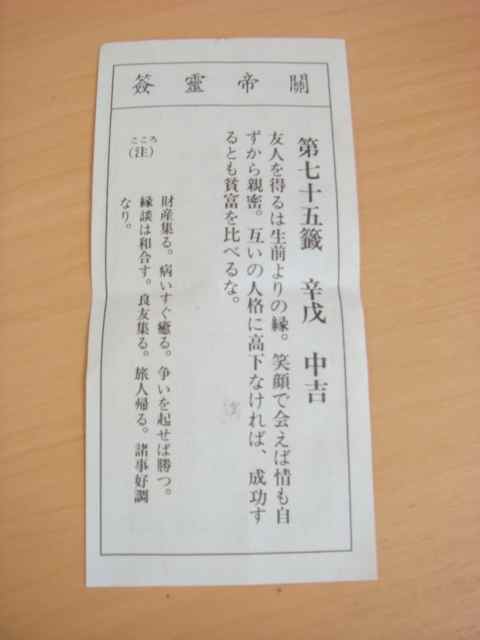 關帝靈簽
第七十五籤　辛戊　中吉
友人を得るは生前よりの縁。笑顔で会えば情も自
ずから親密。互いの人格に高下なければ、成功す
るとも貧富を比べるな。
こころ
（注）
財産集る。病いすぐ癒る。争いを起せば勝つ。
縁談は和合す。良友集る。旅人帰る。諸事好調
なり。